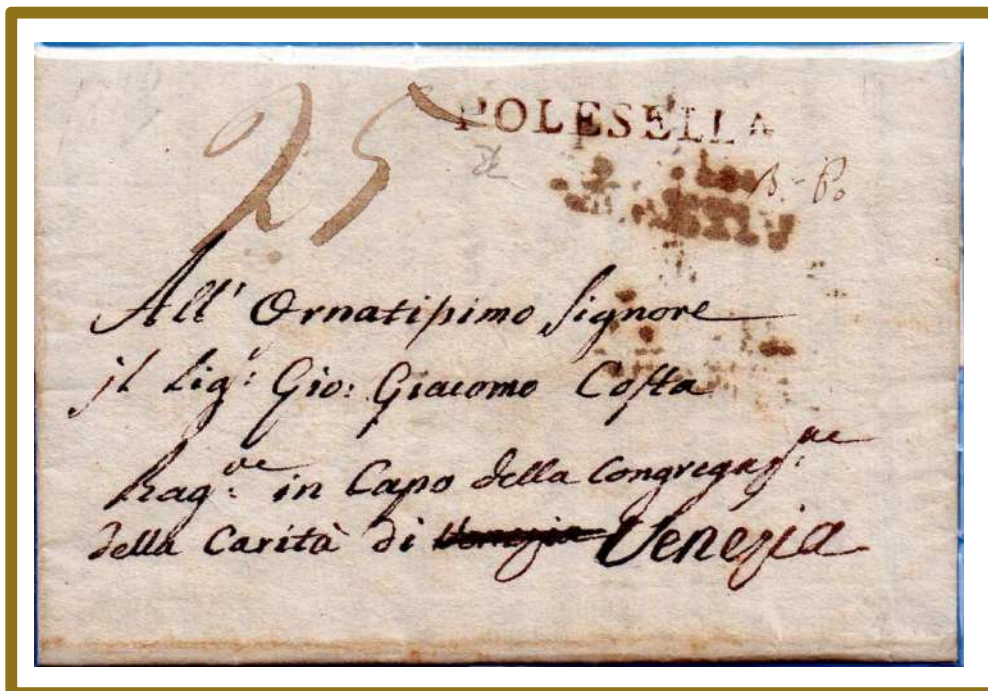 25
POLESELLA
B. Po
All' Ornatissimo Signore
il Sig.r Gio: Giacomo Costa
Rag.re in Capo della Congregaz.ne
della Carità di Venezia Venezia